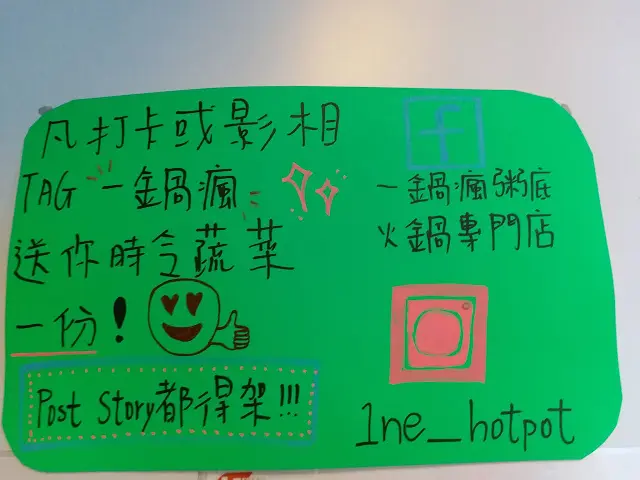 凡打卡或影相
TAG 一鍋瘋
送你時令蔬菜
一份!
Post Story都得架!!!
f
一鍋瘋粥底
火鍋專門店
1ne_hotpot